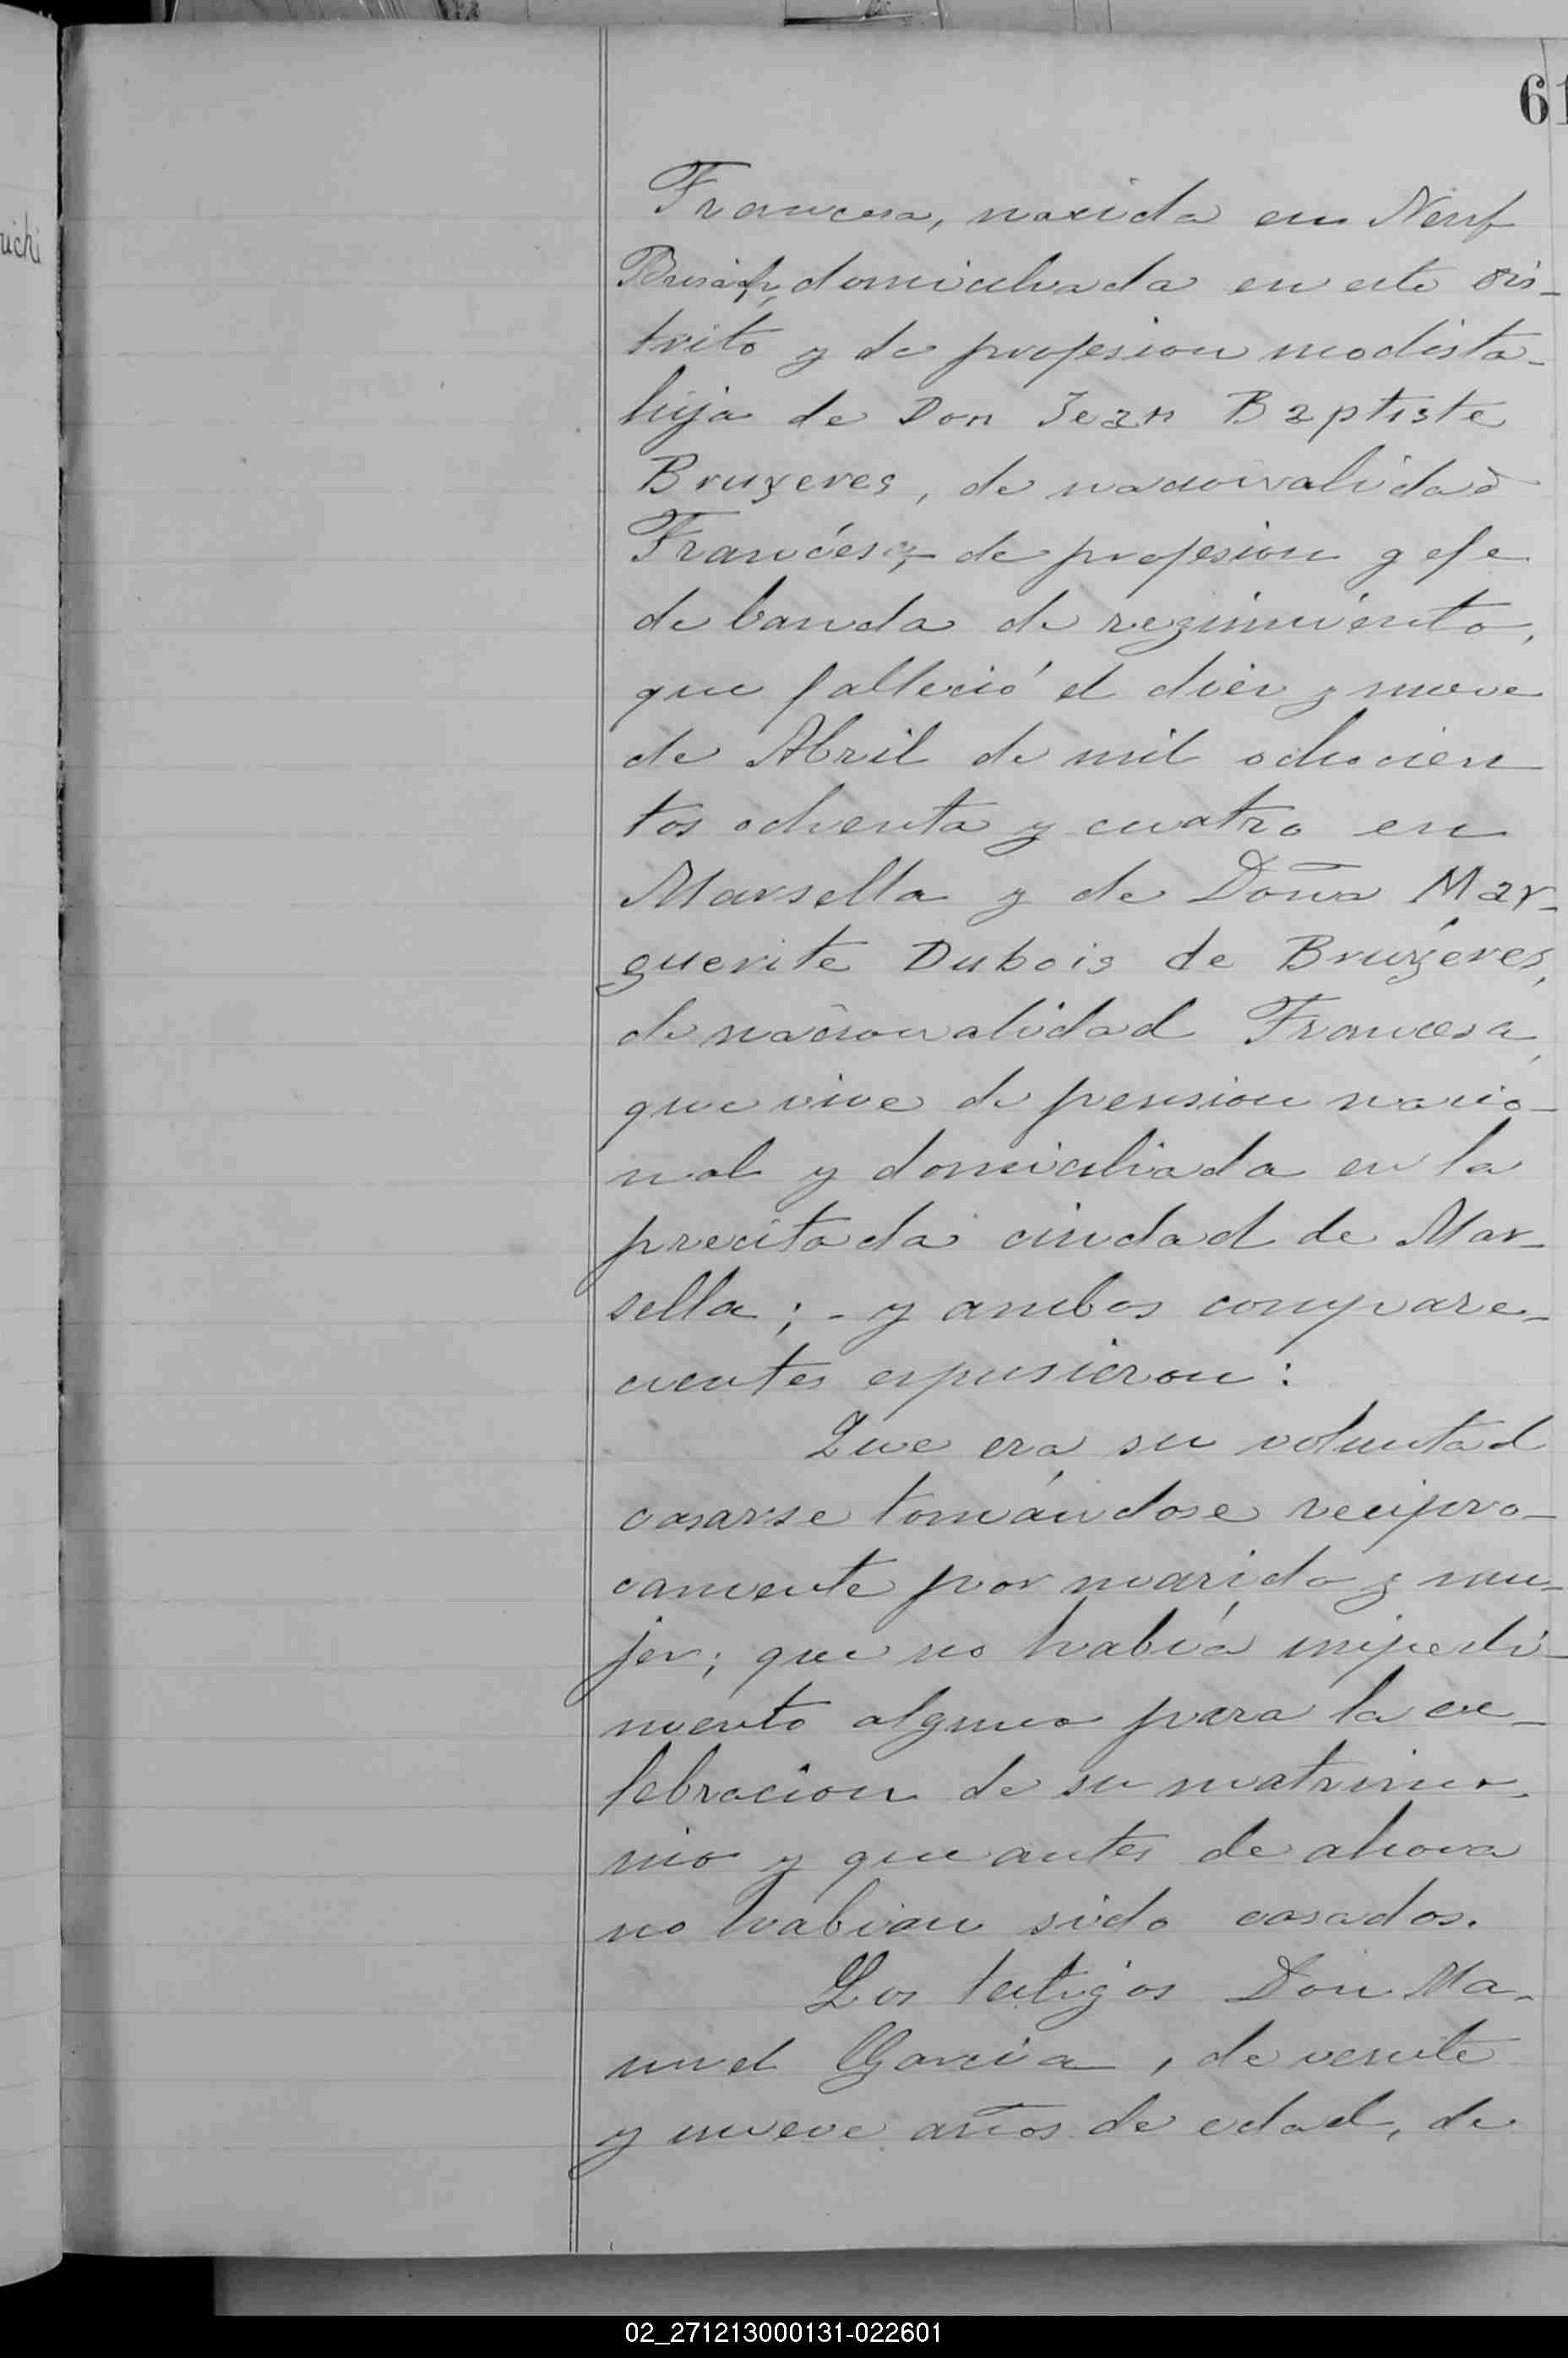 61
uichi
Francesa, nacida en Neuf
Brisach, domiciliada en este dis-
trito y de profesion modista-
hija de Don Jean Baptiste
Bruyeres, de nacionalidad
Francésa, de profesion gefe
de banda de regimiento,
que falleció el diez y nueve
de Abril de mil ochocien
tos ochenta y cuatro en
Marsella y de Doña Mar-
guerite Dubois de Bruyéres,
de nacionalidad Francesa,
que vive de pension nacio-
nal y domiciliada en la
precitada ciudad de Mar-
sella; - y ambos compare-
cientes espusieron:
Que era su voluntad
casarse tomándose recipro-
camente por marido y mu-
jer; que no había impedi-
mento alguno para la ce-
lebracion de su matrimo-
nio y que antes de ahora
no habian sido casados.
Los testigos Don Ma-
nuel Garcia, de veinte
y nueve años de edad, de
02_271213000131-022601